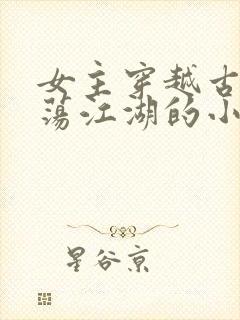 女主穿越古
荡江湖的小
星谷京